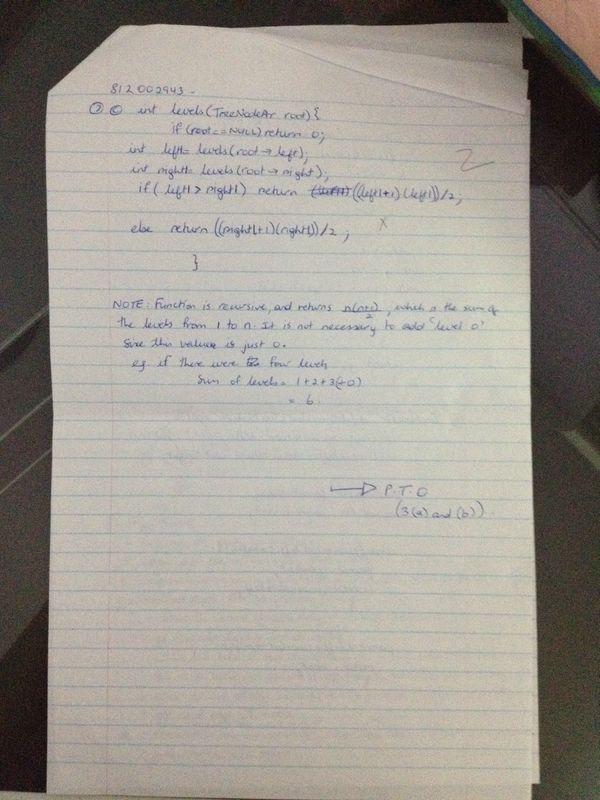 812002943.
③ © int levels(TreeNodePtr root){
if(root==NULL) return 0;
int left1= levels(root→left);
int right1= levels(root→right);
if( left1 > right1) return ((left1+1)(left1))/2;
2
else return((right1+1)(right1))/2;
x
}
NOTE: Function is recursive, and returns n(n+1)/2, which is the sum of
the levels from 1 to n. It is not necessary to add 'level 0'
since this value is just 0.
eg. if there were four levels
Sum of levels= 1+2+3(+0)
= 6.
→ P.T.O
(3(a) and (b))